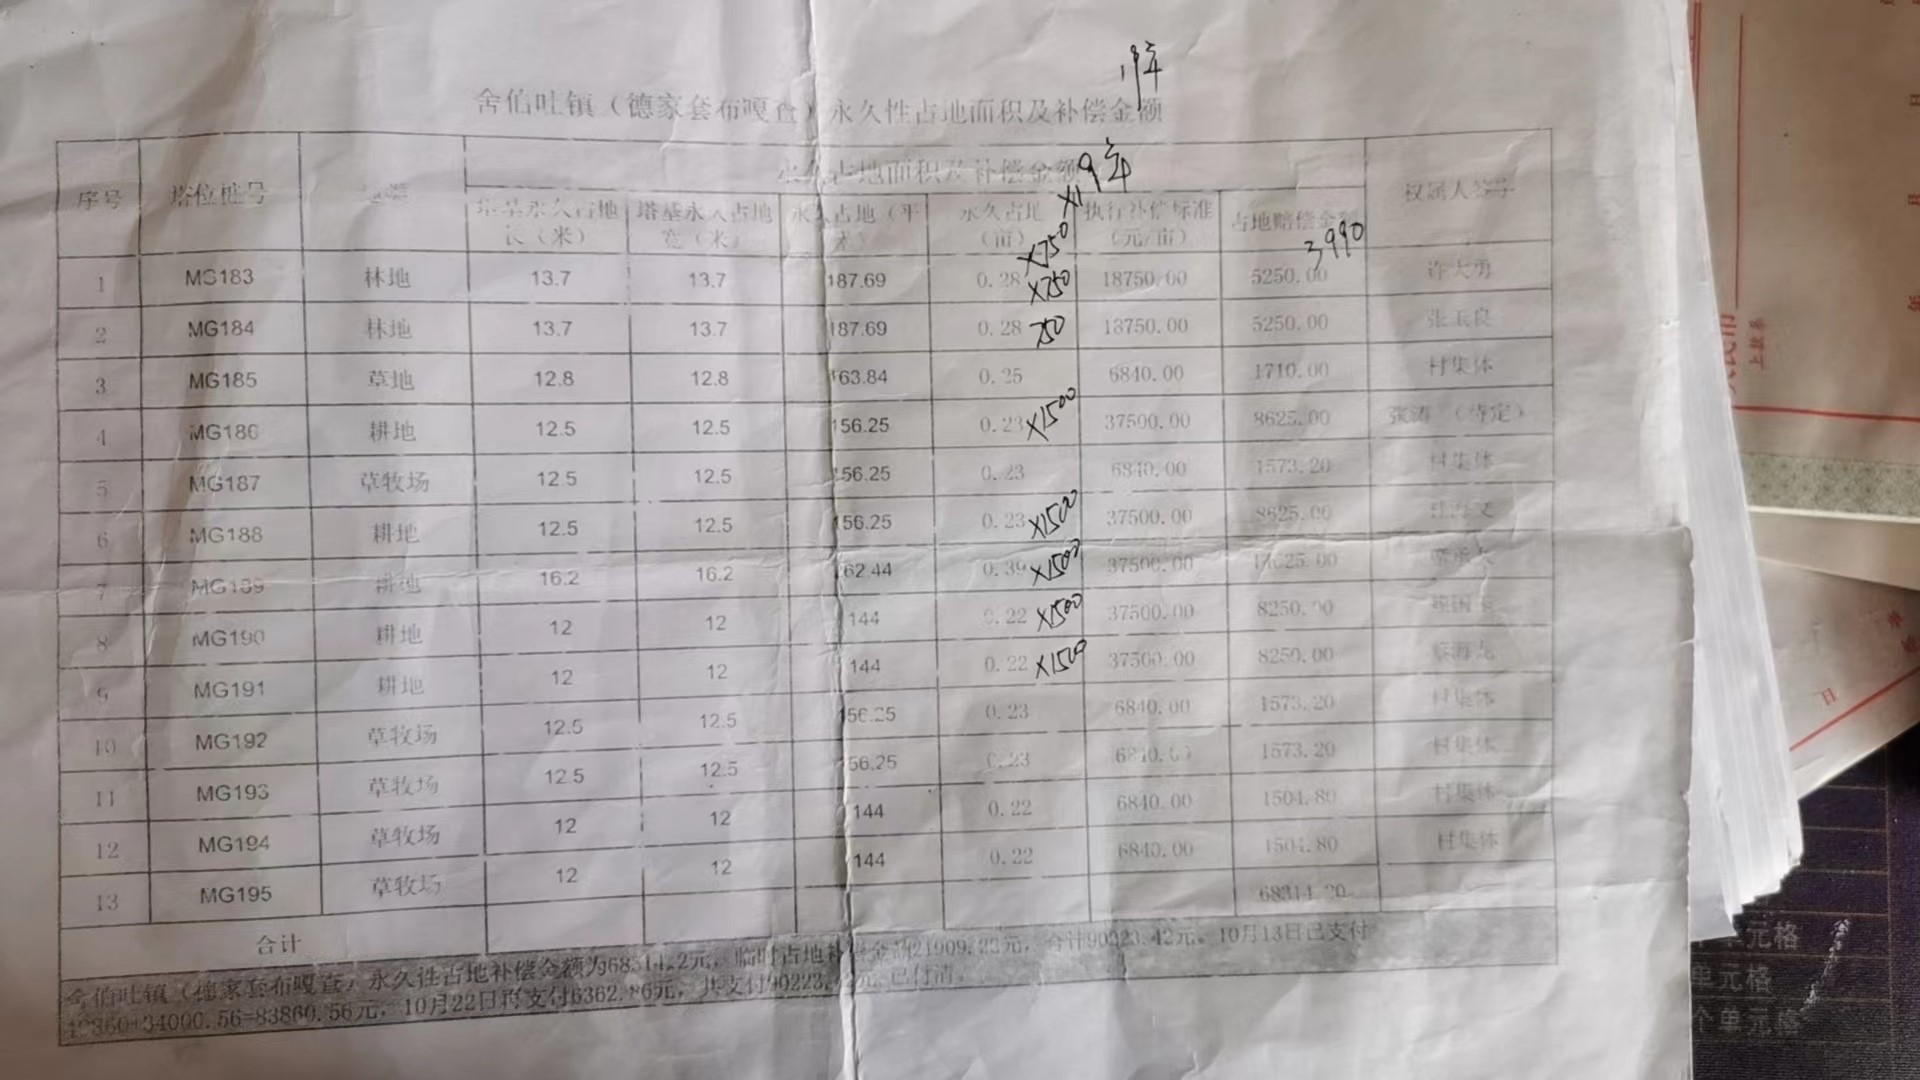 19年
舍伯吐镇（德家套布嘎查）永久性占地面积及补偿金额
序号 塔位桩号 永久占地面积及补偿金额 权属人签字
×19年
塔基永久占地长（米） 塔基永久占地宽（米） 永久占地（平米） 永久占地（亩） 执行补偿标准（元/亩） 占地赔偿金额
×750 3990
1 MG183 林地 13.7 13.7 187.69 0.28 ×750 18750.00 5250.00
2 MG184 林地 13.7 13.7 187.69 0.28 750 18750.00 5250.00 张玉良
3 MG185 草地 12.8 12.8 163.84 0.25 6840.00 1710.00 村集体
4 MG186 耕地 12.5 12.5 156.25 0.23 ×1500 37500.00 8625.00 张涛（待定）
5 MG187 草牧场 12.5 12.5 156.25 0.23 6840.00 1573.20 村集体
6 MG188 耕地 12.5 12.5 156.25 0.23 ×1500 37500.00 8625.00
7 MG189 耕地 16.2 16.2 262.44 0.39 ×1500 37500.00 14625.00
8 MG190 耕地 12 12 144 0.22 ×1500 37500.00 8250.00
9 MG191 耕地 12 12 144 0.22 ×1500 37500.00 8250.00
10 MG192 草牧场 12.5 12.5 156.25 0.23 6840.00 1573.20 村集体
11 MG193 草牧场 12.5 12.5 156.25 0.23 6840.00 1573.20 村集体
12 MG194 草牧场 12 12 144 0.22 6840.00 1504.80 村集体
13 MG195 草牧场 12 12 144 0.22 6840.00 1504.80 村集体
合计 68314.20
舍伯吐镇（德家套布嘎查）永久性占地补偿金额为68314.2元，临时占地补偿金额21909.22元，合计90223.42元。10月13日已支付
49860+34000.56=83860.56元，10月22日再支付6362.86元，共支付90223.42元，已付清。
单元格
单元格
个单元格